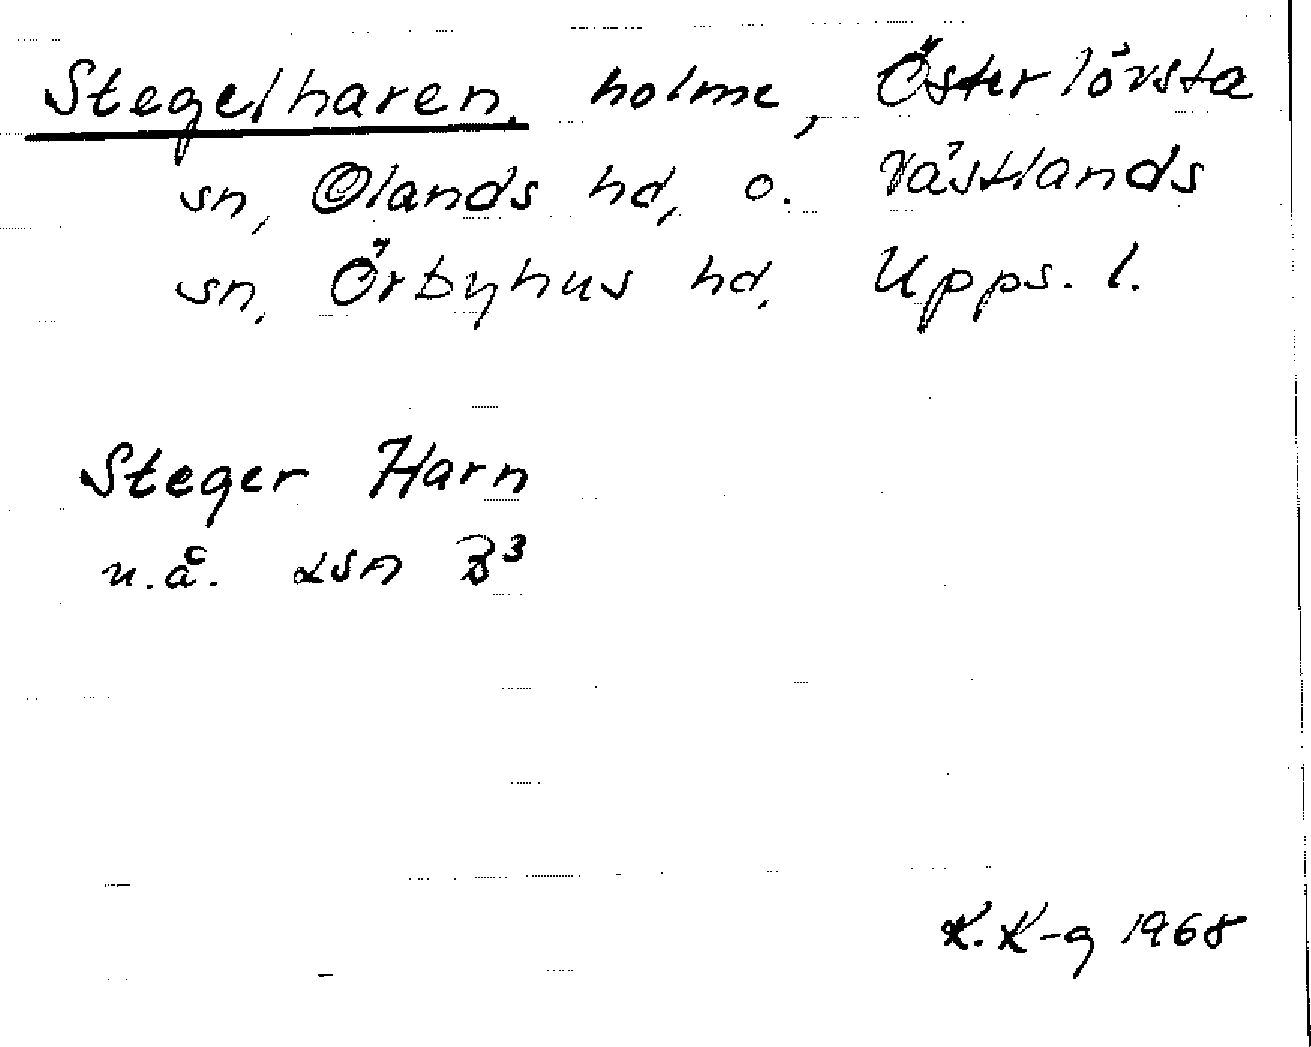 Stegelharen, holme, Österlövsta
sn, Olands hd, o. Västlands
sn, Örbyhus hd, Upps. l.
Steger Harn
u.å. LSA B3
K. K-g 1968